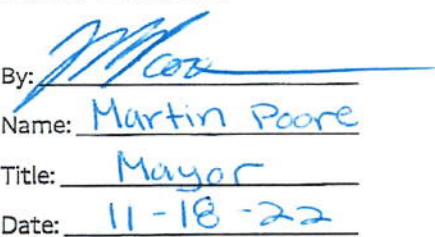 By:
Name: Martin Poore
Title: Mayor
Date: 11-18-22